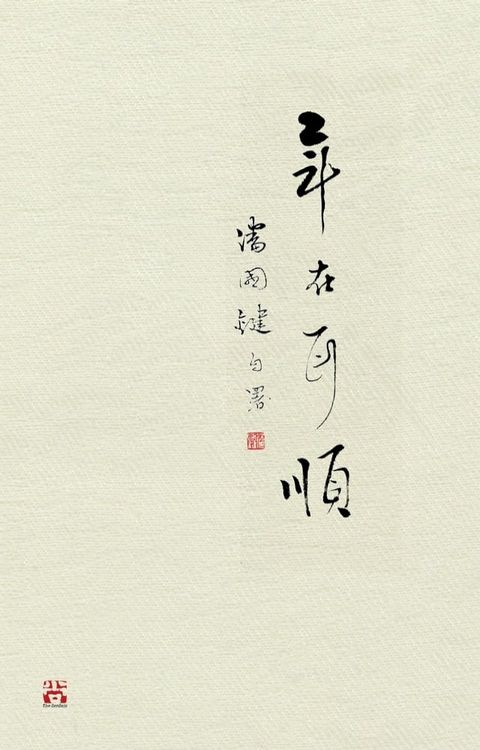 年在耳順
潘國鍵自署